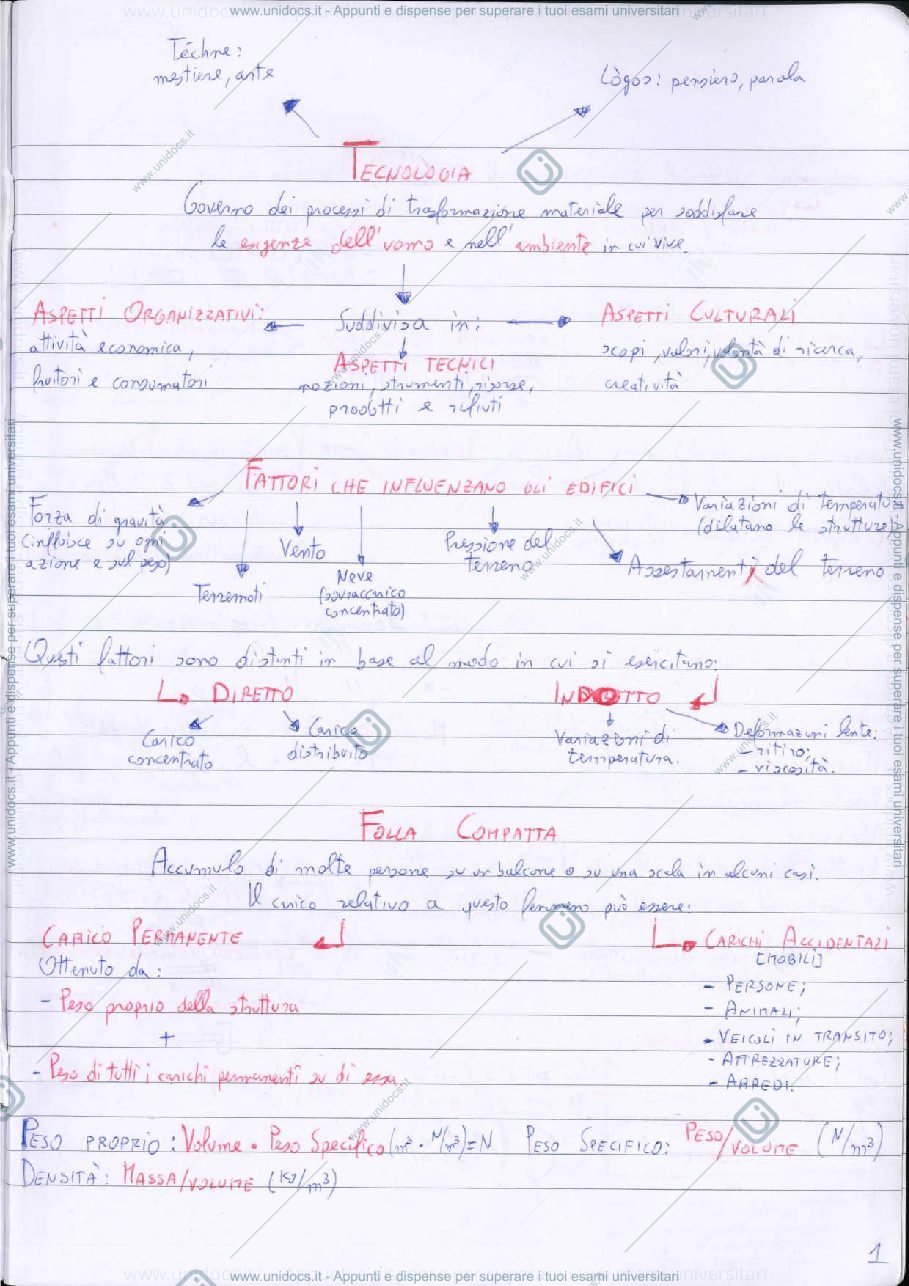 www.unidocs.it - Appunti e dispense per superare i tuoi esami universitari
Téchne:
mestiere, arte
Lògos: pensiero, parola
TECNOLOGIA
Governo dei processi di trasformazione materiale per soddisfare
le esigenze dell'uomo e nell'ambiente in cui vive.
ASPETTI ORGANIZZATIVI:
attività economica,
fruitori e consumatori
Suddivisa in:
ASPETTI TECNICI
nozioni, strumenti, risorse,
prodotti e rifiuti
ASPETTI CULTURALI
scopi, valori, volontà di ricerca,
creatività
FATTORI CHE INFLUENZANO GLI EDIFICI
Forza di gravità
(influisce su ogni
azione e sul peso)
Terremoti
Vento
Neve
(sovraccarico
concentrato)
Pressione del
terreno
Assestamenti del terreno
Variazioni di temperatura
(dilatano le strutture)
Questi fattori sono distinti in base al modo in cui si esercitano:
DIRETTO
Carico
concentrato
Carico
distribuito
INDIRETTO
Variazioni di
temperatura.
Deformazioni lente:
- ritiro;
- viscosità.
FOLLA COMPATTA
Accumulo di molte persone su un balcone o su una scala in alcuni casi.
Il carico relativo a questo fenomeno può essere:
CARICO PERMANENTE
Ottenuto da:
- Peso proprio della struttura
+
- Peso di tutti i carichi permanenti su di essa
CARICHI ACCIDENTALI
[MOBILI]
- PERSONE;
- ANIMALI;
- VEICOLI IN TRANSITO;
- ATTREZZATURE;
- ARREDI.
PESO PROPRIO: Volume • Peso Specifico (m³ • N/m³)=N PESO SPECIFICO: PESO/VOLUME (N/m³)
DENSITÀ: MASSA/VOLUME (Kg/m³)
1
www.unidocs.it - Appunti e dispense per superare i tuoi esami universitari